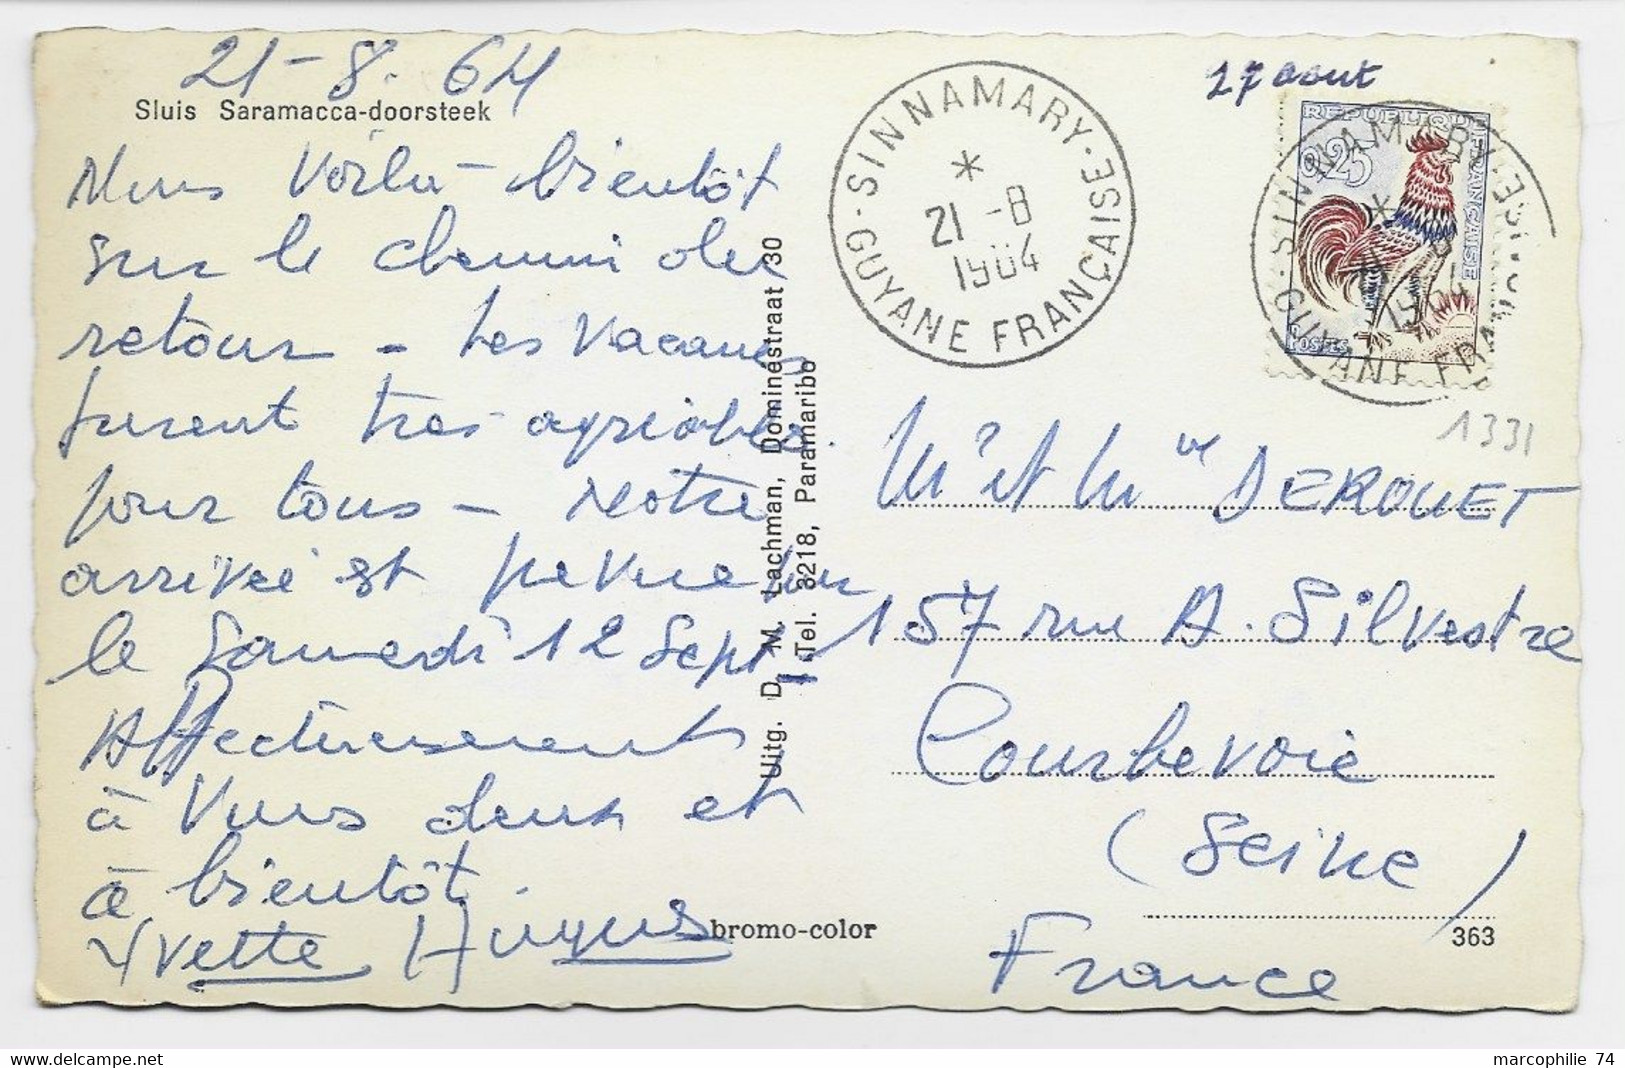 21-8. 64
Sluis Saramacca-doorsteek
Nous Voilà - bientôt
sur le chemin des
retour - Les Vacances
furent très agréables.
pour tous - Notre
arrivée est prévue pour
le Samedi 12 Sept.
Affectueusement
à Vous deux et
à bientôt.
Yvette
Uitg. D. M. Lachman, Dominéstraat 30
Tel. 3218, Paramaribo
bromo-color
SINNAMARY - GUYANE FRANÇAISE
*
21 -8
1964
27 aout
REPUBLIQUE FRANÇAISE
0,25
POSTES
SINNAMARY GUYANE FR
1964
1331
Mr et Mme DEROUET
157 rue A. Silvestre
Courbevoie
(Seine)
France
363
marcophilie 74